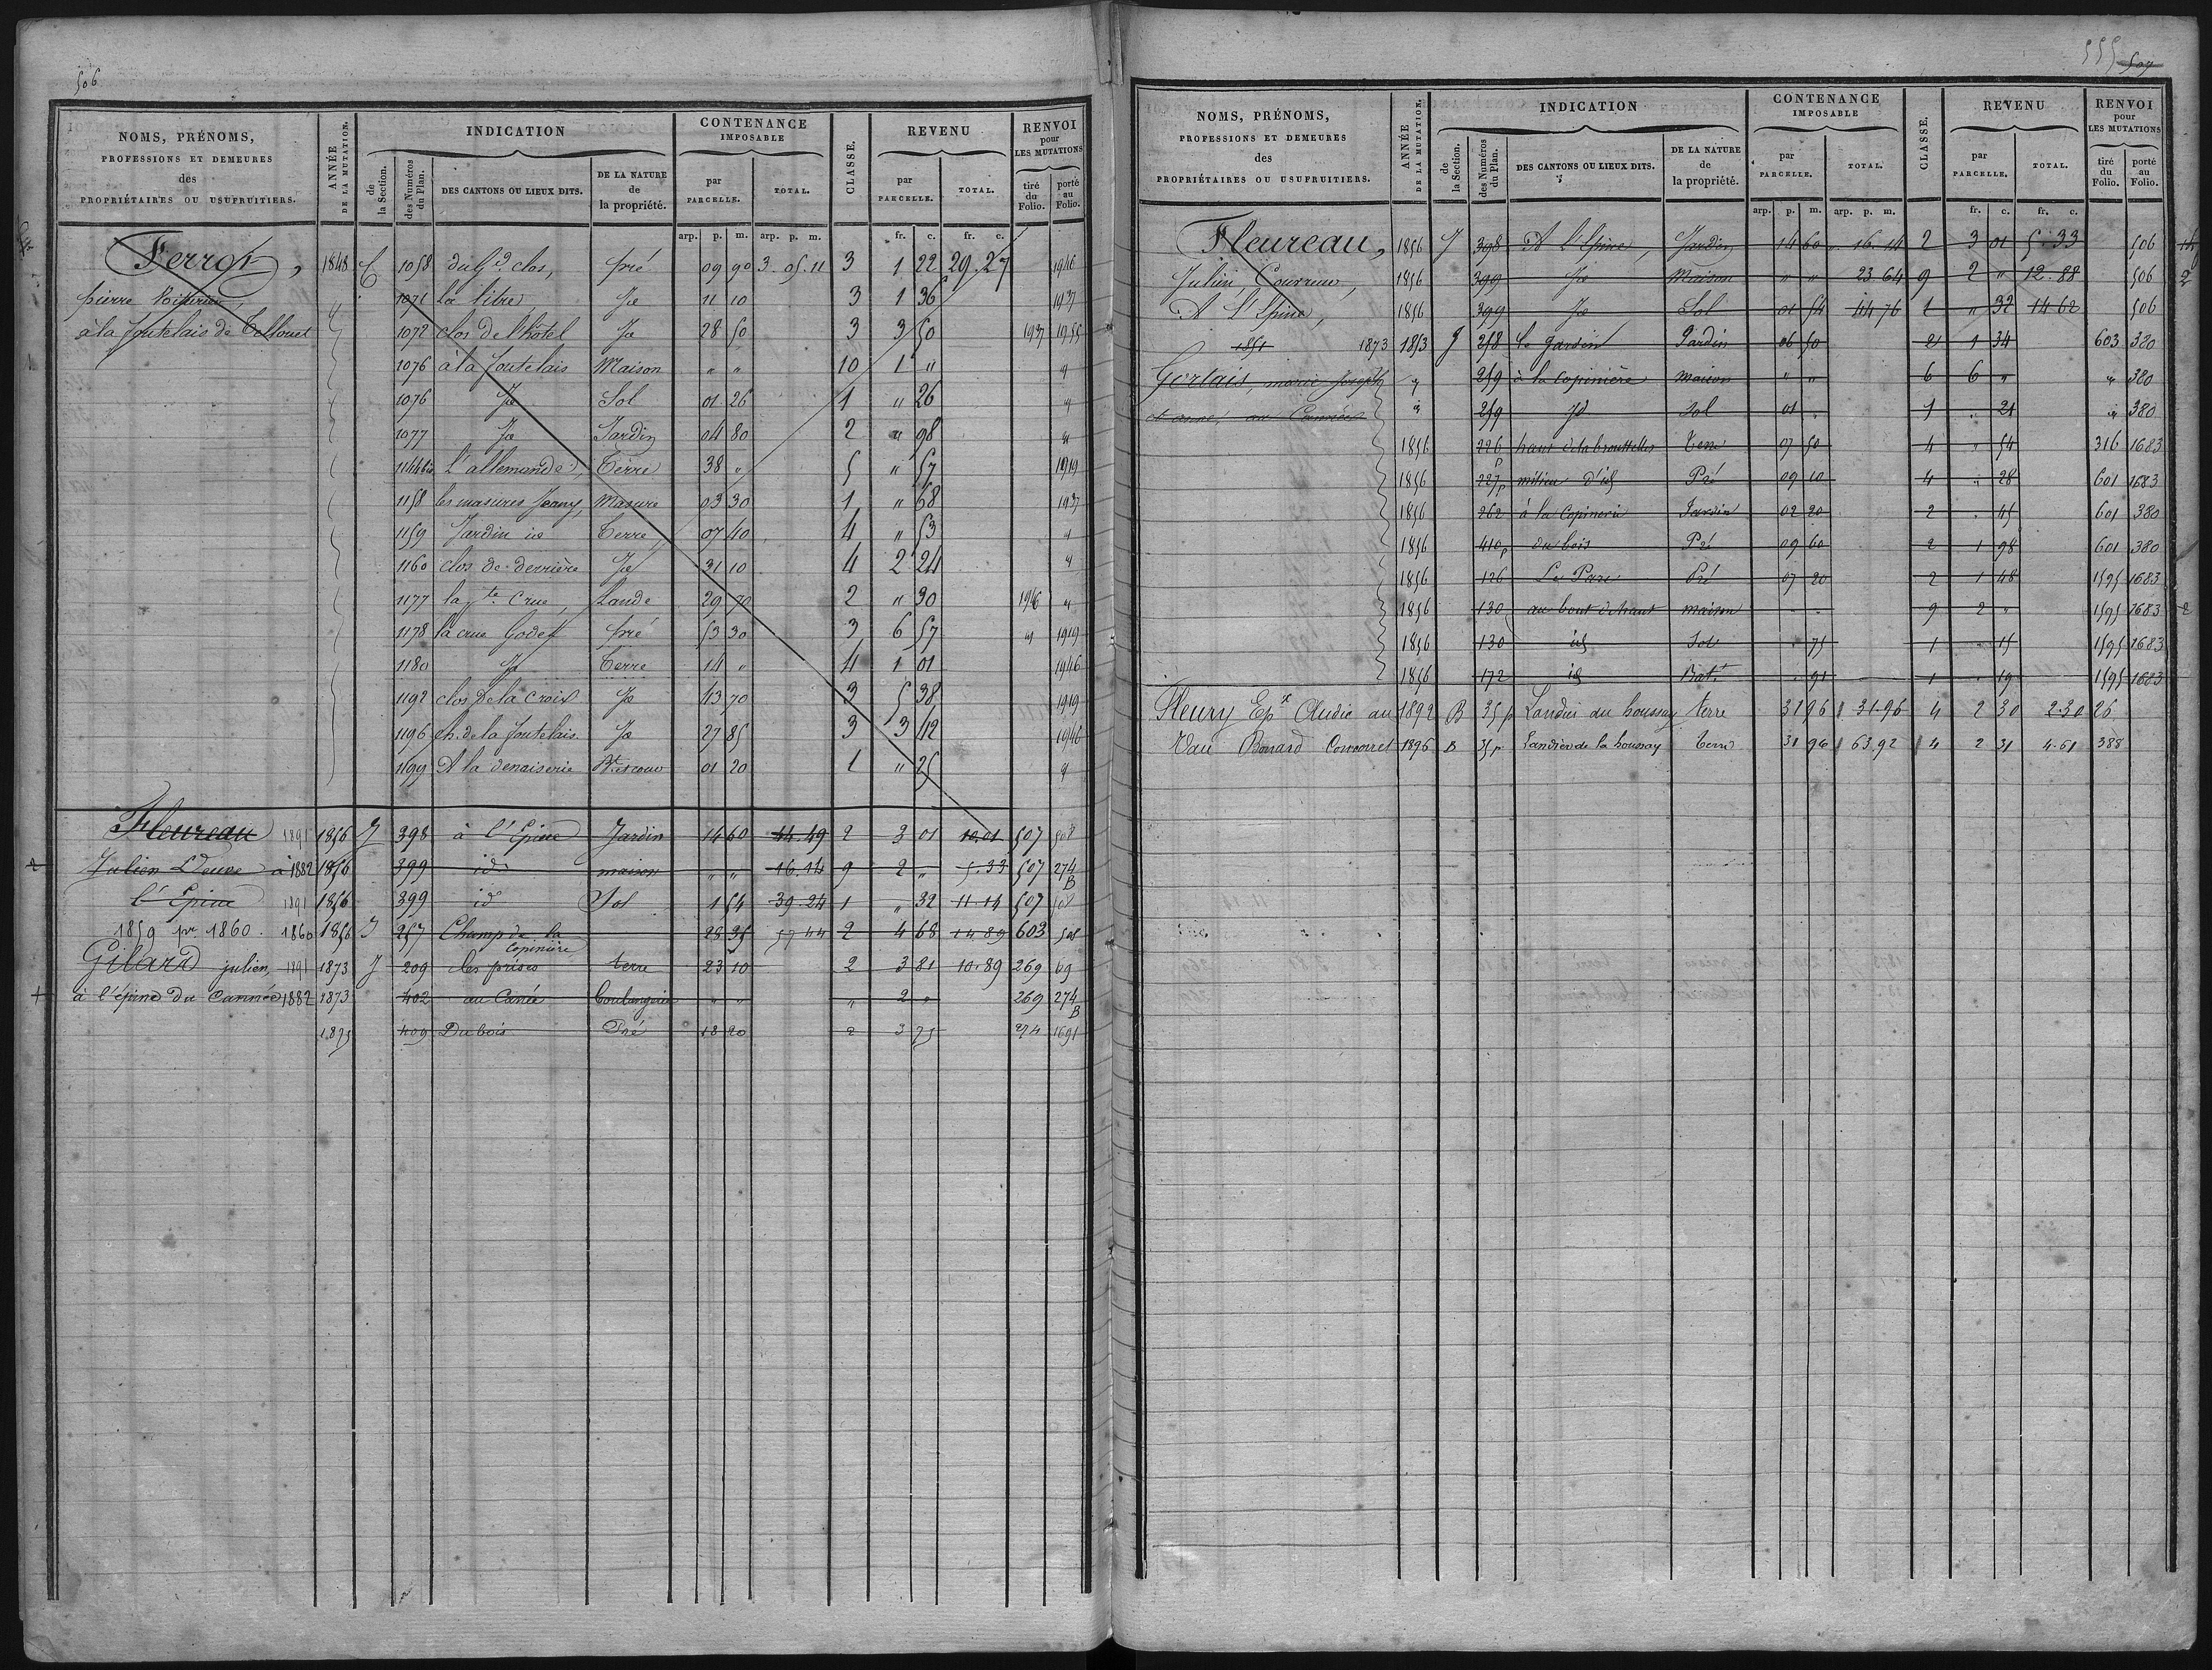 506
NOMS, PRÉNOMS,
PROFESSIONS ET DEMEURES
des
PROPRIÉTAIRES OU USUFRUITIERS.
ANNÉE
DE LA MUTATION.
INDICATION
de
la Section.
des Numéros
du Plan.
DES CANTONS OU LIEUX DITS.
DE LA NATURE
de
la propriété.
CONTENANCE
IMPOSABLE
par
PARCELLE.
TOTAL.
CLASSE.
REVENU
par
PARCELLE.
TOTAL.
RENVOI
pour
LES MUTATIONS
tiré
du
Folio.
porté
au
Folio.
arp. p. m. arp. p. m. fr. c. fr. c.
Ferrot, 1848 C 1058 du Gd clos, pré 09 90 3. 05. 11 3 1 22 29. 27 1946
pierre 1071 la litre, Id 11 10 3 1 36 1937
à la foutelais de 1072 clos de l'hôtel Id 28 50 3 3 50 1937 1955
1076 à la foutelais Maison " " 10 1 " "
1076 Id Sol 01 26 1 " 26 "
1077 Id Jardin 04 80 2 " 98 "
1144 bis L'allemande, Terre 38 " 5 " 57 1919
1158 les masures Jeany, Masure 03 30 1 " 68 1937
1159 Jardin id Terre 07 40 4 " 53 "
1160 clos de derrière Id 31 10 4 2 24 "
1177 la pte Crue, Lande 29 70 2 " 30 1946 "
1178 la crue Godet pré 53 30 3 6 57 " 1919
1180 Id Terre 14 " 4 1 01 1946
1192 clos de la croix Id 43 70 3 5 38 1919
1196 ch. de la foutelais Id 27 85 3 3 42 1946
1199 A la denaiserie 01 20 1 " 25 "
Fleureau 1891 1856 J 398 à l'Epine Jardin 14 60 44. 49 2 3 01 10. 01 507 508
Julien Veuve à 1882 1856 399 id maison " " 16. 14 9 2 " 5. 33 507 274 B
l'Epine 1891 1856 399 id Sol 1 54 39. 24 1 " 32 11. 14 507 508
1859 pr 1860. 1860 1856 J 257 Champ de la Copinière 28 35 57 44 2 4 68 14. 89 603 508
Gilard julien, 1891 1873 J 209 les prises terre 23 10 2 3 81 10. 89 269 69
à l'épine du Cannée 1882 1873 402 au Canée Boulangerie " " " 2 " 269 274 B
1875 409 Du bois Pré 18 20 2 3 75 274 1691
555 507
NOMS, PRÉNOMS,
PROFESSIONS ET DEMEURES
des
PROPRIÉTAIRES OU USUFRUITIERS.
ANNÉE
DE LA MUTATION.
INDICATION
de
la Section.
des Numéros
du Plan.
DES CANTONS OU LIEUX DITS.
DE LA NATURE
de
la propriété.
CONTENANCE
IMPOSABLE
par
PARCELLE.
TOTAL.
CLASSE.
REVENU
par
PARCELLE.
TOTAL.
RENVOI
pour
LES MUTATIONS
tiré
du
Folio.
porté
au
Folio.
arp. p. m. arp. p. m. fr. c. fr. c.
Fleureau, 1856 J 398 A l'Epine, Jardin 14 60 16. 14 2 3 01 5. 33 506
Julien, Couvreur, 1856 399 Id Maison " " 23. 64 9 2 " 12. 88 506 2
A l'Epine, 1856 399 Id Sol 01 54 44 76 1 " 32 14 62 506
1851 1873 1853 J 258 le Jardin Jardin 06 50 2 1 34 603 380
Gerlais, marie Joseph " 259 à la Copinière maison " " 6 6 " " 380
" 259 Id Sol 01 " 1 " 21 " 380
1856 226 p haut de la Terre 07 50 4 " 54 316 1683
1856 227 p milieu d'id Pré 09 10 4 " 28 601 1683
1856 262 à la Copinerie Jardin 02 20 2 " 45 601 380
1856 410 p du bois Pré 09 60 2 1 98 601 380
1856 126 Le Parc Pré 07 20 2 1 48 1595 1683
1856 130 au bout d'chaut maison " " 9 2 " 1595 1683 2
1856 130 id Sol " 75 1 " 15 1595 1683
1856 172 id Bat. " 91 1 " 19 1595 1683
Fleury Epx Cludic au 1892 B 35 p Landier du houssay terre 31 96 31. 96 4 2 30 2.30 26
Vau Bonard Concourret 1896 B 35 p Landier de la houssay terre 31 96 63. 92 4 2 31 4. 61 388